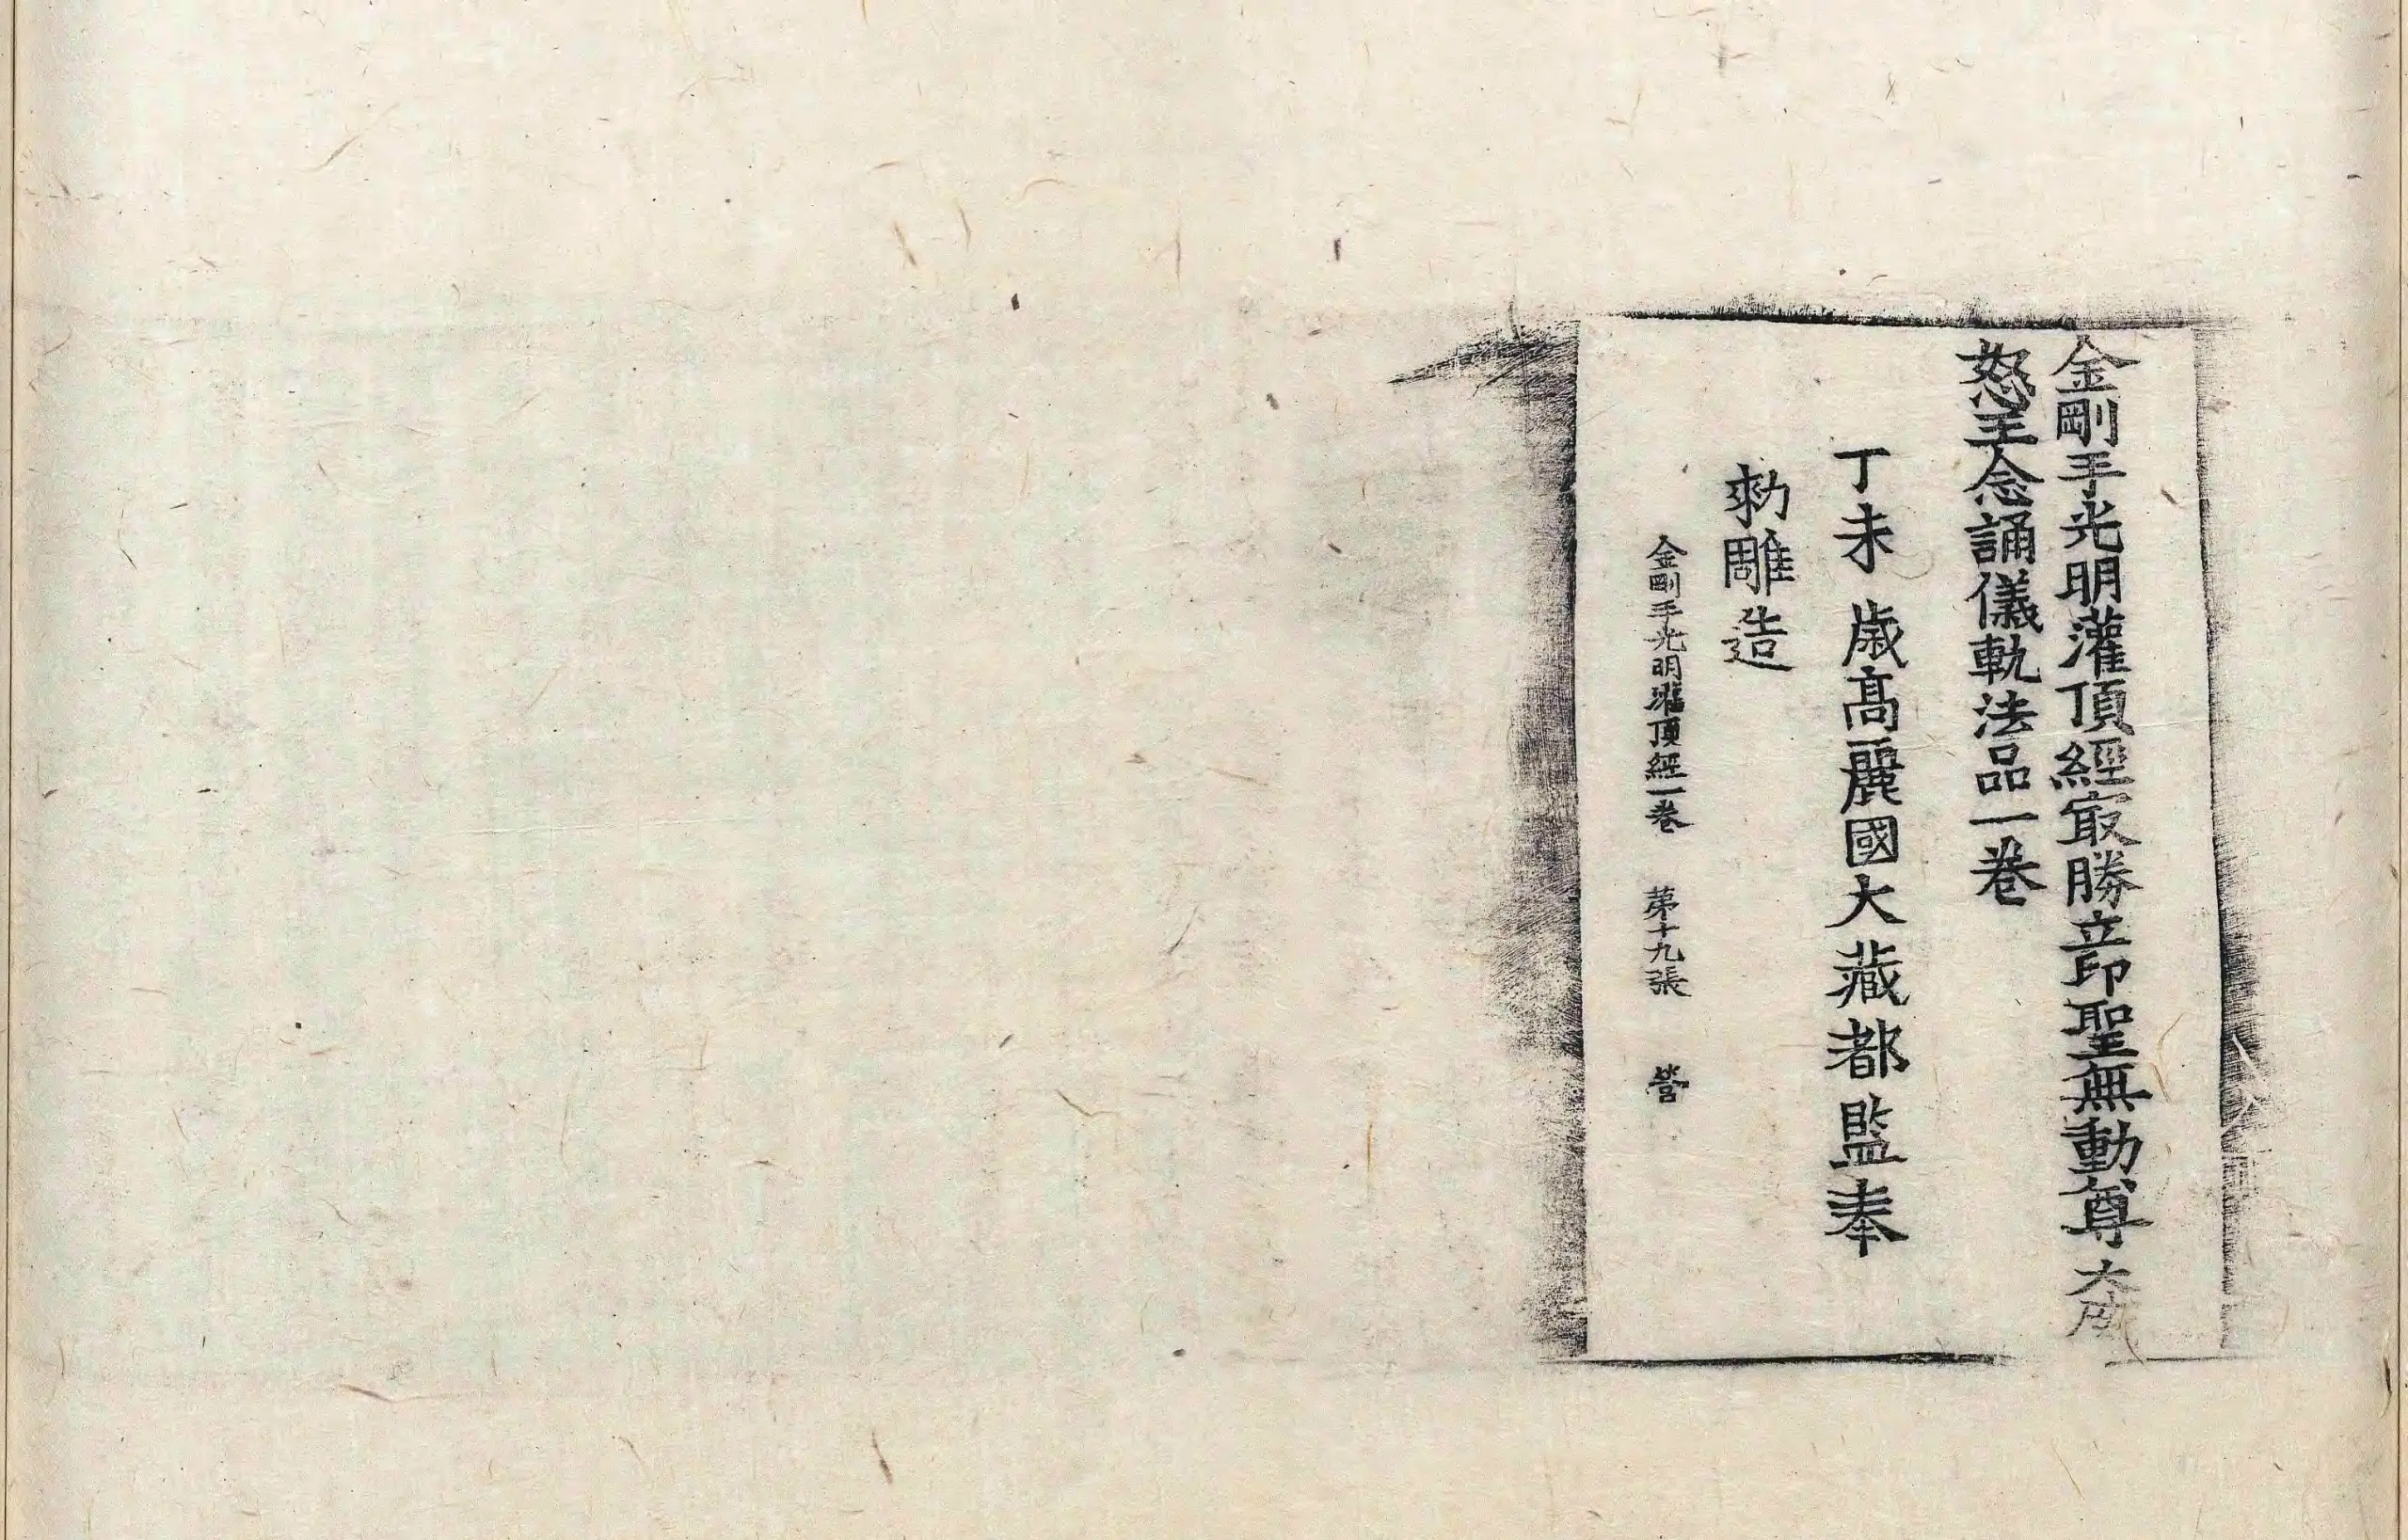 金剛手光明灌頂經冣勝立印聖無動尊大威
怒王念誦儀軌法品一卷
丁未歲高麗國大藏都監奉
勑雕造
金剛手光明灌頂經一卷 苐十九張 營